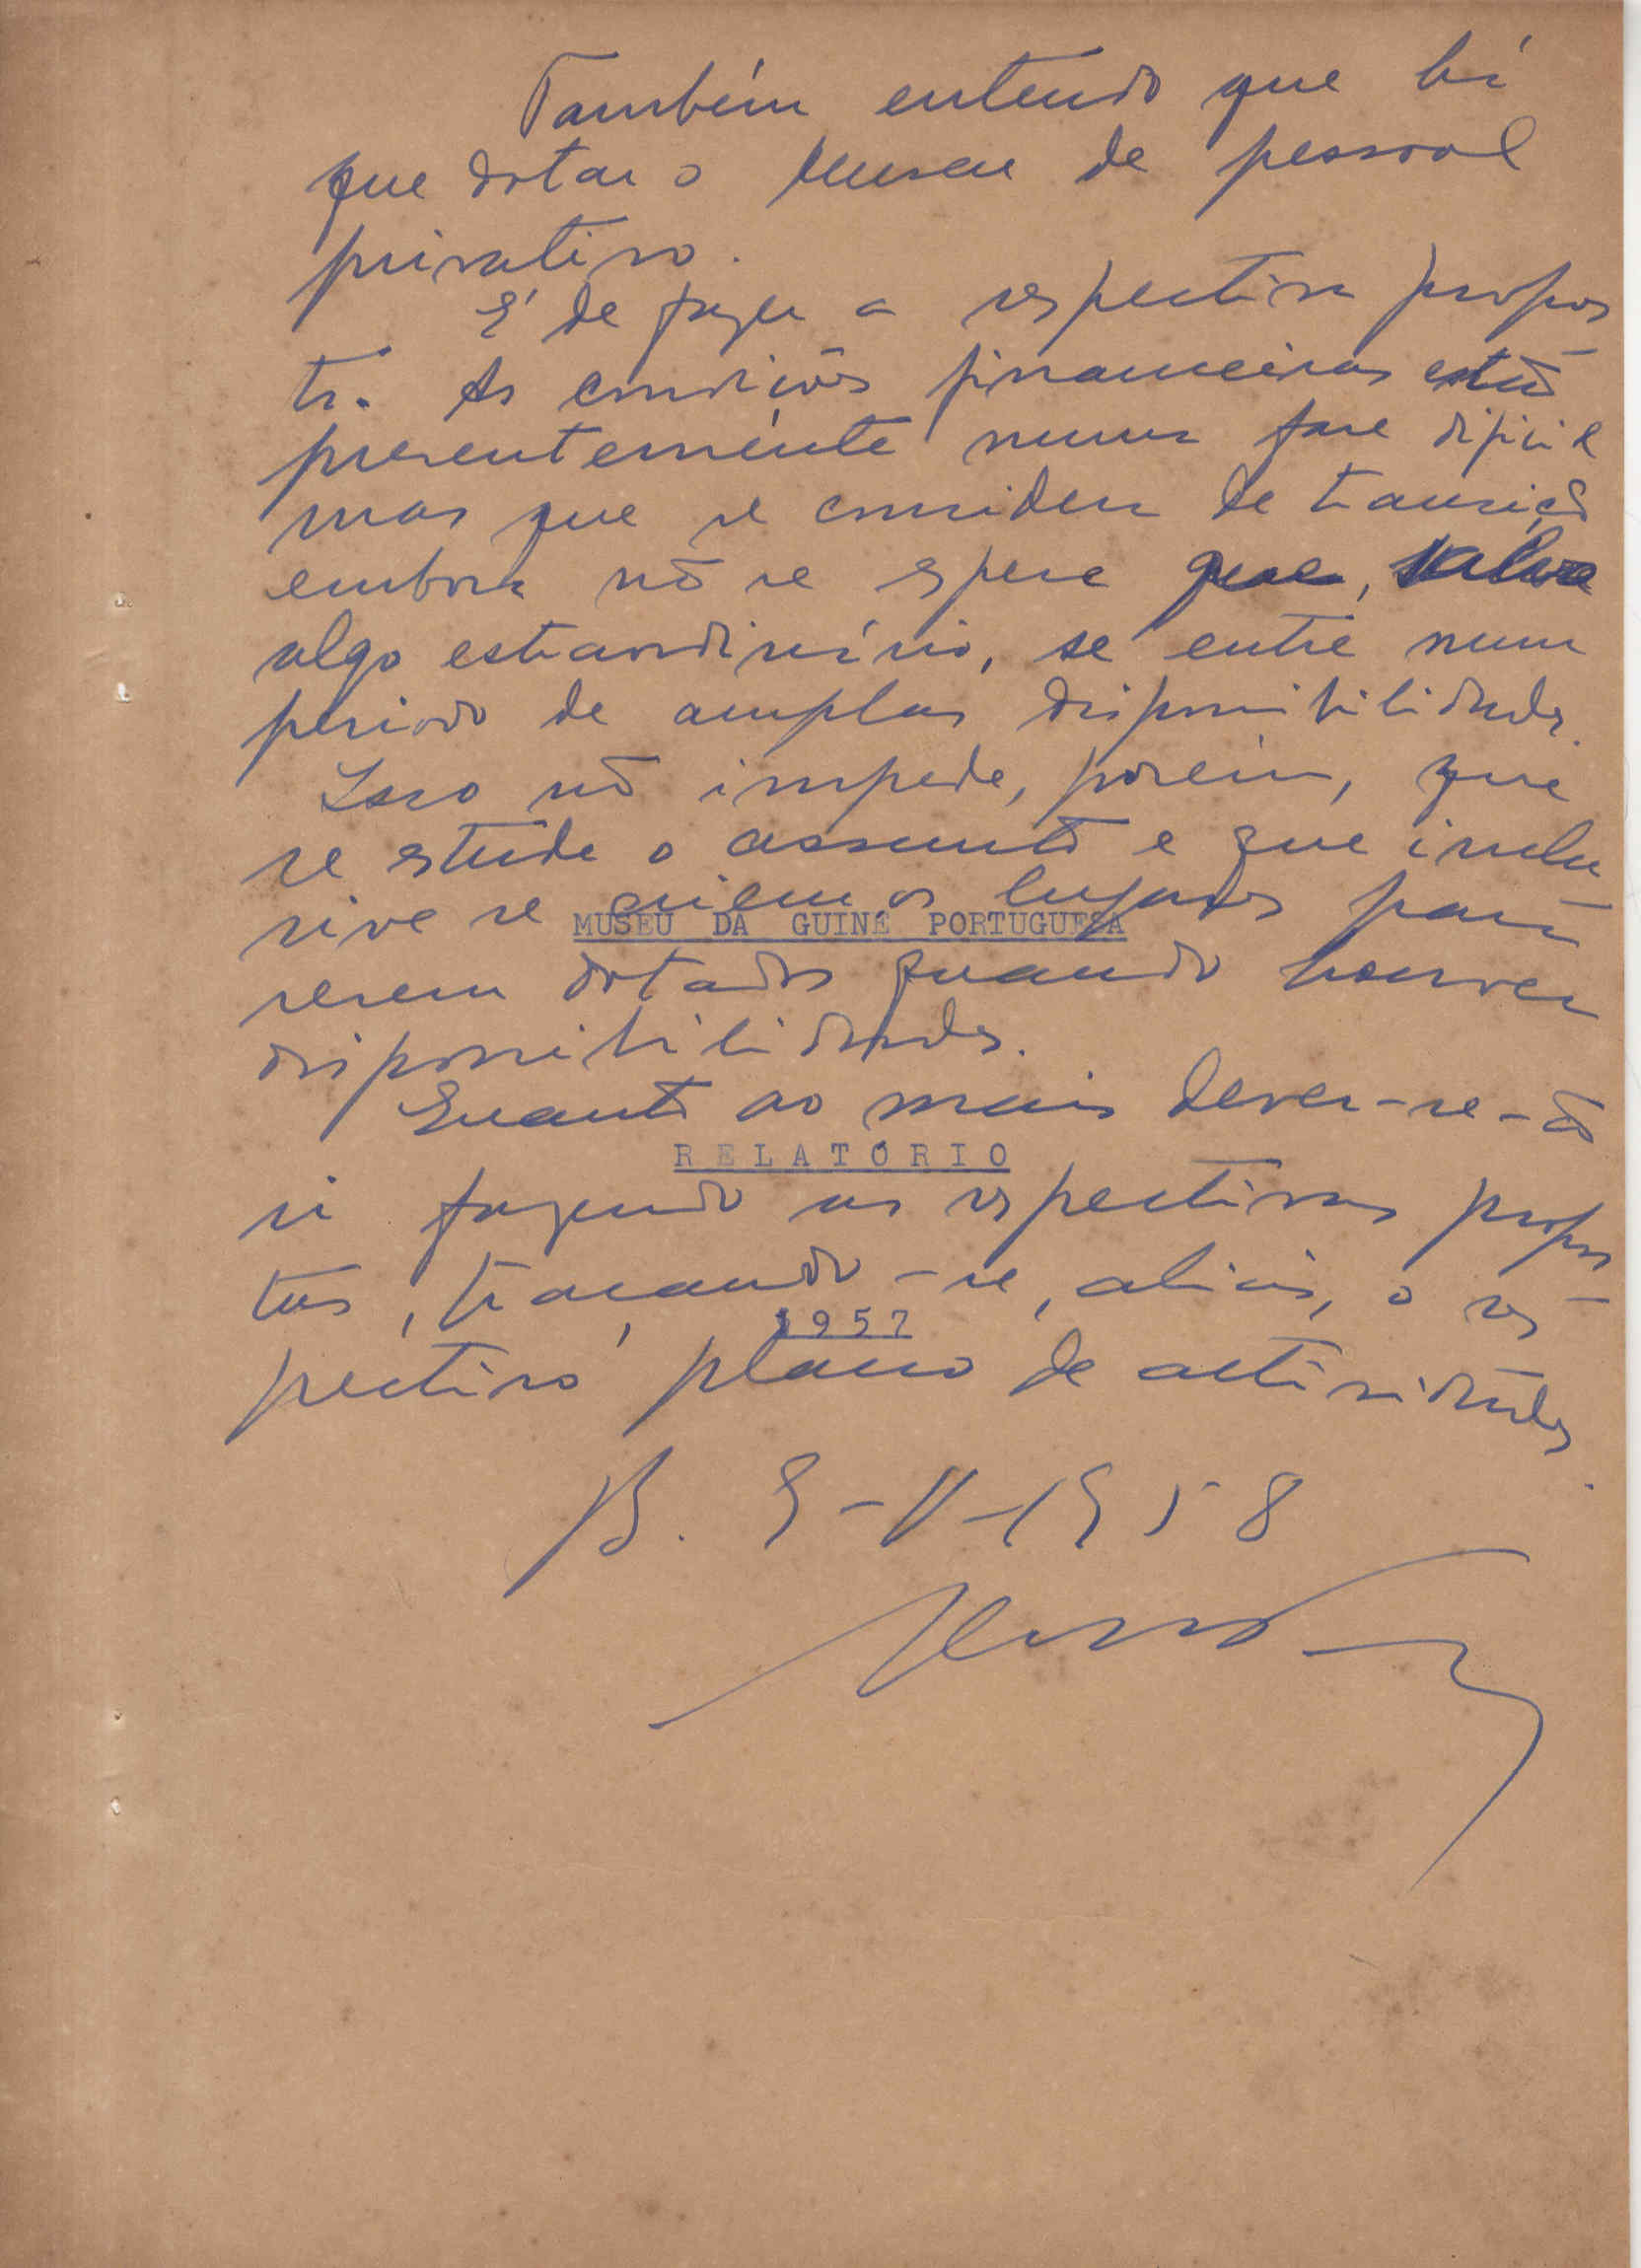 Também entendo que há
que dotar o Museu de pessoal
privativo.
É de fazer a respectiva propos
ta. As condições financeiras estão
presentemente numa fase dificil
mas que se considera de transição
embora não se espere que, salvo
algo extraordinário, se entre num
periodo de amplas disponibilidades.
Isso não impede, porém, que
se estude o assunto e que inclu
sive se criem os lugares para
MUSEU DA GUINÉ PORTUGUESA
serem dotados quando houver
disponibilidades.
Quanto ao mais dever-se-ão
RELATÓRIO
ir fazendo as respectivas propos
tas, traçando-se, aliás, o res-
1957
pectivo plano de actividades.
B. 9-V-1958